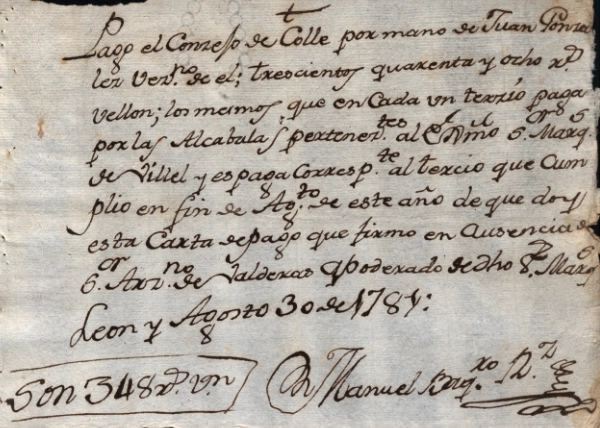 †
Pago el Conzejo de Colle por mano de Juan Gonza
lez Vez.no de el; trescientos quarenta y ocho r.s
vellon; los mesmos que en Cada un terzio paga
por las Alcabalas pertenez.tes al Exmo S.or Marq.s
de Villel y es paga Corresp.te al tercio que Cum
plio en fin de Ag.to de este año de que doy
esta Carta de pago que firmo en Ausencia de
S.or de Valderas Apoderado de dho S.r Marq.s
Leon y Agosto 30 de 1781:
Son 348 r.s v.n
Manuel